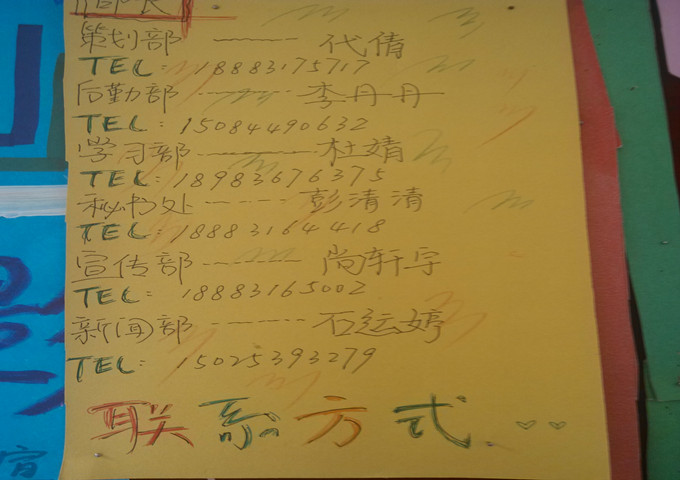 部长
策划部 ------- 代倩
TEL: 18883175717
后勤部 ------- 李丹丹
TEL: 15084490632
学习部 ------- 杜婧
TEL: 18983676375
秘书处 ----- 彭清清
TEL: 18883164418
宣传部 ------- 尚轩宇
TEL: 18883165002
新闻部 ------- 石运婷
TEL: 15025393279
联系方式